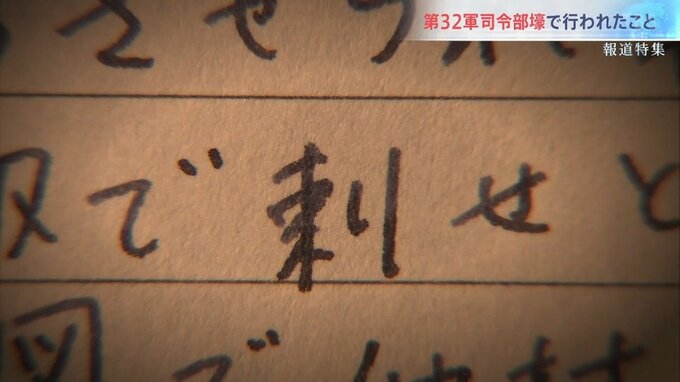 第32軍司令部壕で行われたこと
報道特集
させ
で刺せと
図で